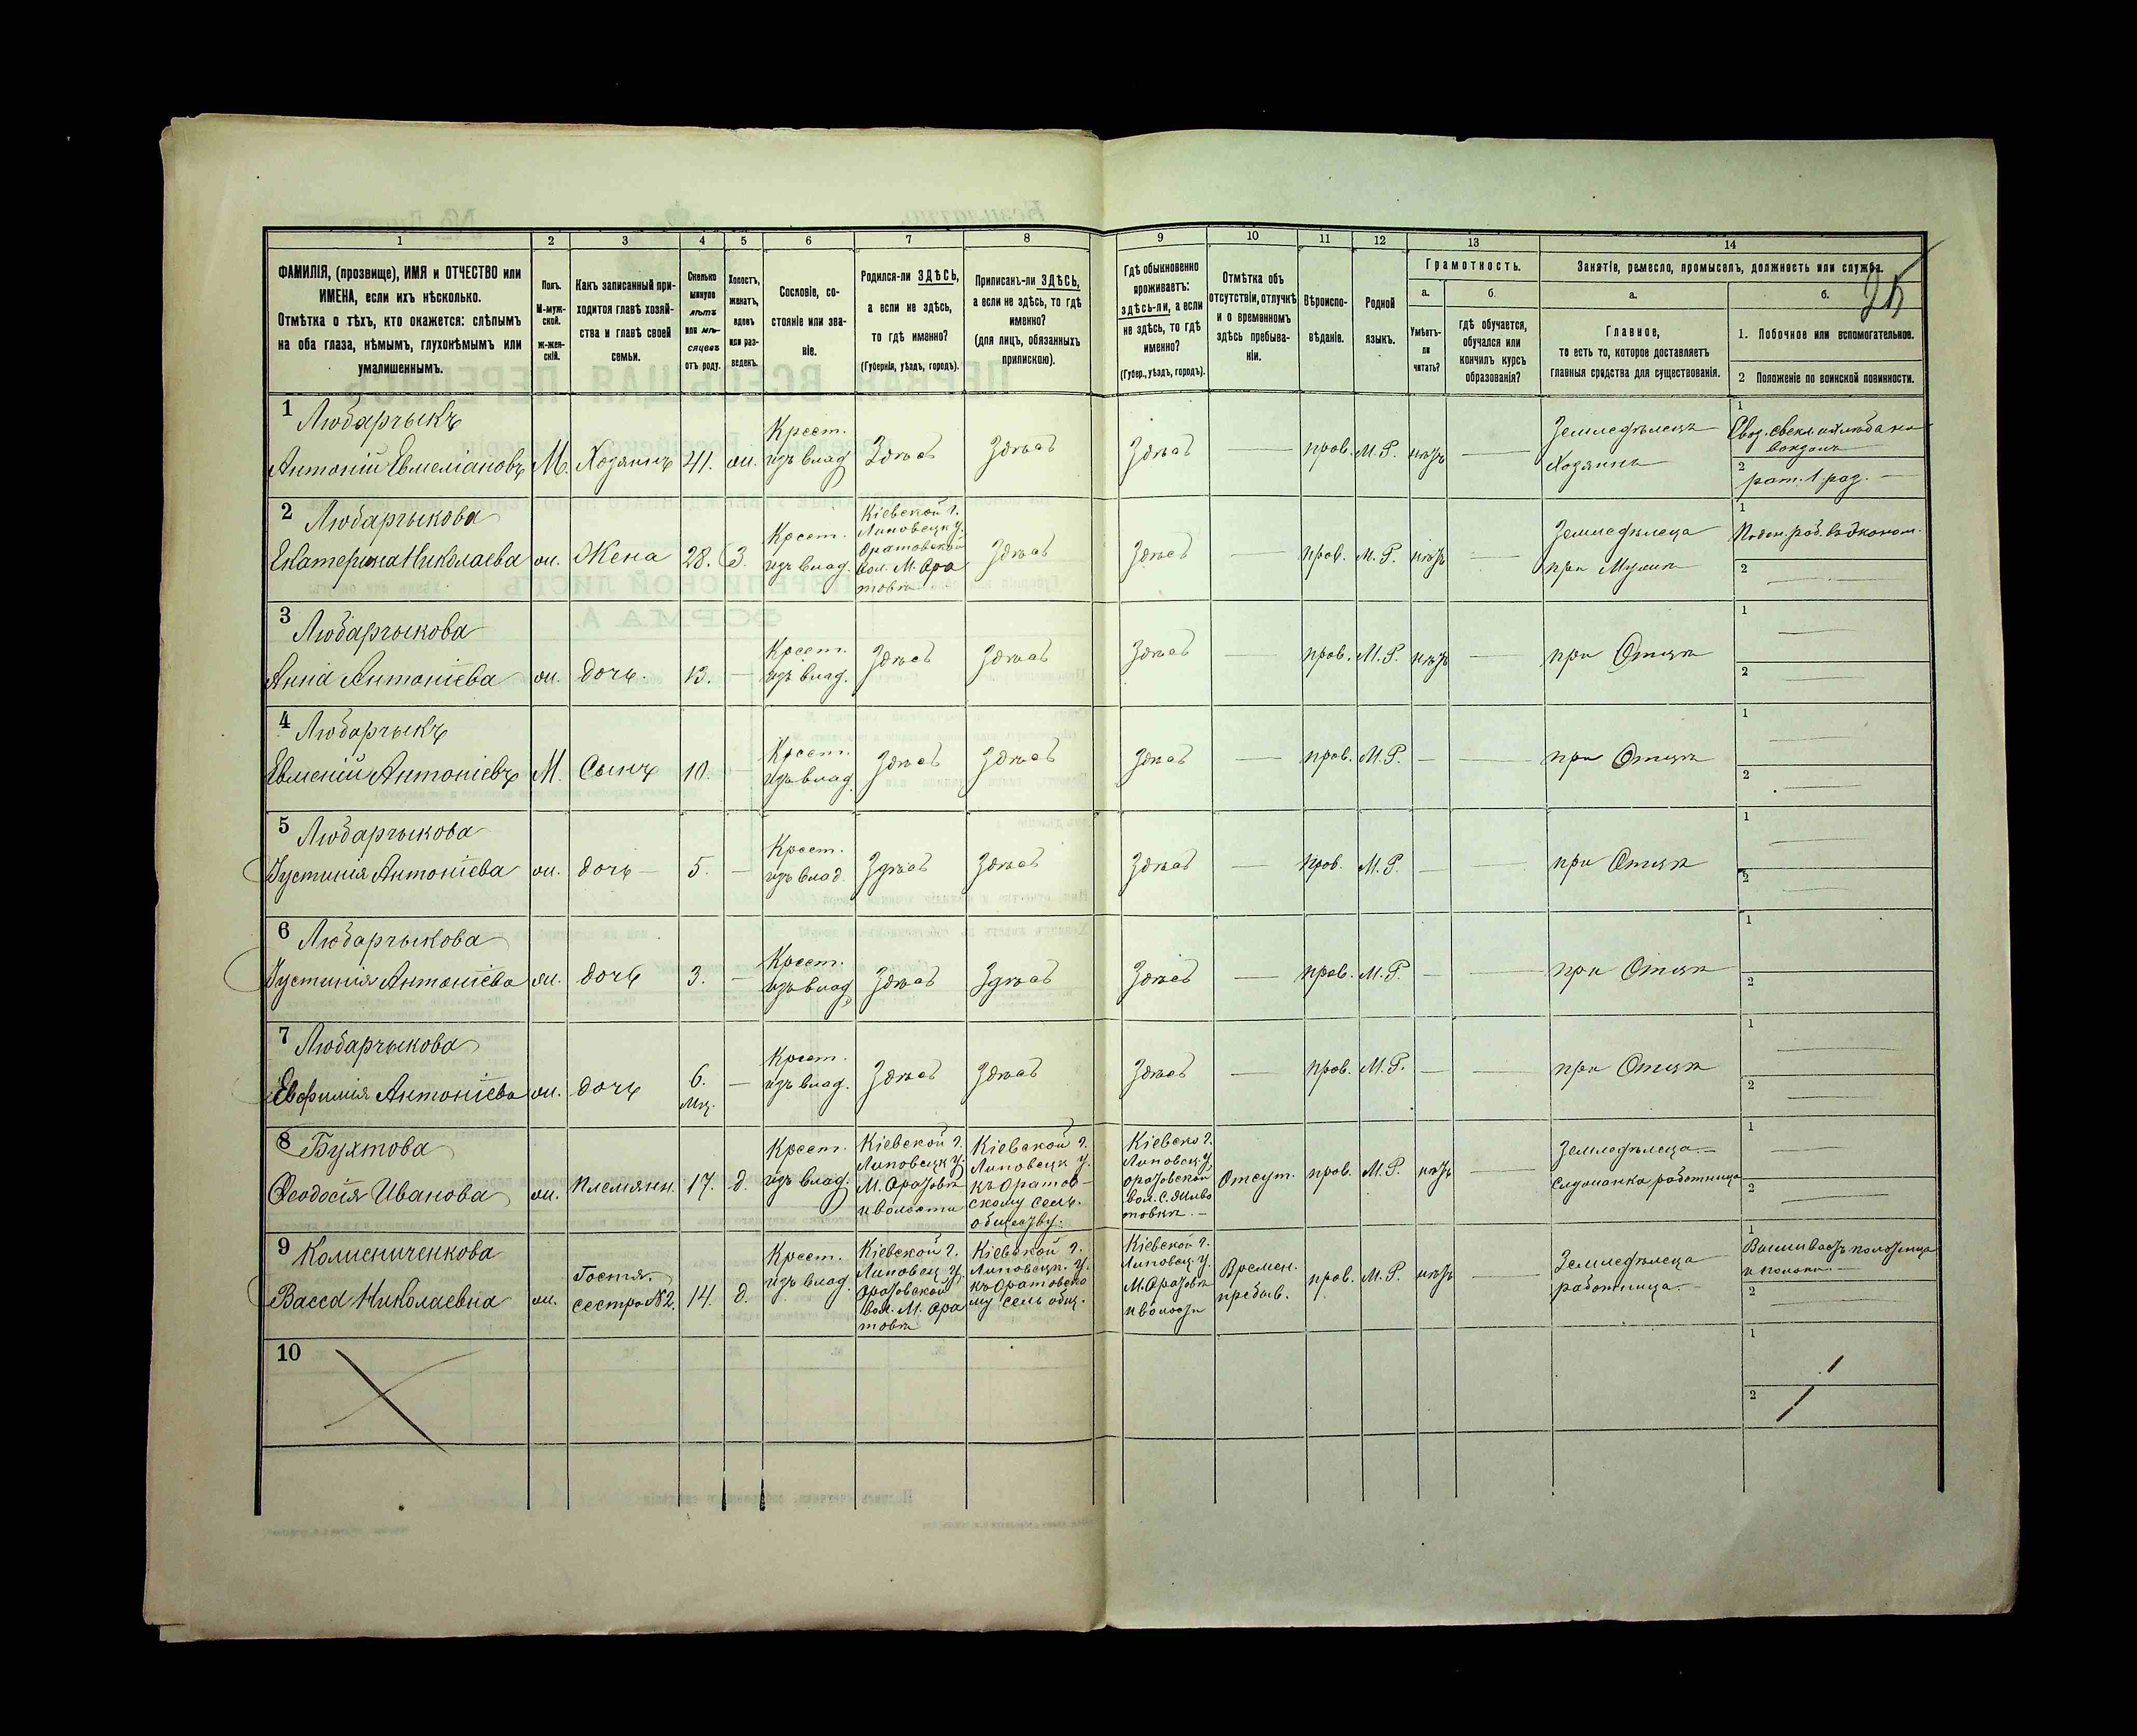 1 2 3 4 5 6 7 8 9 10 11 12 13 14
ФАМИЛІЯ, (прозвище), ИМЯ и ОТЧЕСТВО или
ИМЕНА, если ихъ нѣсколько.
Отмѣтка о тѣхъ, кто окажется: слѣпымъ
на оба глаза, нѣмымъ, глухонѣмымъ или
умалишеннымъ.
Полъ.
М-муж-
ской.
Ж-жен-
скій.
Какъ записанный при-
ходится главѣ хозяй-
ства и главѣ своей
семьи.
Сколько
минуло
лѣтъ
или мѣ-
сяцевъ
отъ роду.
Холостъ,
женатъ,
вдовъ
или раз-
веденъ.
Сословіе, со-
стояніе или зва-
ніе.
Родился-ли ЗДѢСЬ,
а если не здѣсь,
то гдѣ именно?
(Губернія, уѣздъ, городъ).
Приписанъ-ли ЗДѢСЬ,
а если не здѣсь, то гдѣ
именно?
(для лицъ, обязанныхъ
припискою).
Гдѣ обыкновенно
проживаетъ:
здѣсь-ли, а если
не здѣсь, то гдѣ
именно?
(Губер., уѣздъ, городъ).
Отмѣтка объ
отсутствіи, отлучкѣ
и о временномъ
здѣсь пребыва-
ніи.
Вѣроиспо-
вѣданіе.
Родной
языкъ.
Грамотность.
а.
Умѣетъ-
ли
читать?
б.
гдѣ обучается,
обучался или
кончилъ курсъ
образованія?
Занятіе, ремесло, промыселъ, должность или служба.
а.
Главное,
то есть то, которое доставляетъ
главныя средства для существованія.
б.
1. Побочное или вспомогательное.
2 Положеніе по воинской повинности.
1 Любарчыкъ
Антоній Евмеліановъ М. Хозяинъ 41. ж. Крест. изъ влад. Здѣсь Здѣсь Здѣсь — прав. М.Р. нѣтъ — Земледѣлецъ Хозяинъ
1
2 рат. 1 раз. —
2 Любарчыкова
Екатерина Николаева ж. Жена 28. З. Крест. изъ влад. Кіевской г. Липовецк у. Оратовской вол. М. Оратовѣ Здѣсь Здѣсь — прав. М.Р. нѣтъ — Земледѣлеца при Мужѣ
1 Поден. раб. въ эконом.
2 —
3 Любарчыкова
Анна Антоніева ж. дочь. 13. — Крест. изъ влад. Здѣсь Здѣсь Здѣсь — прав. М.Р. нѣтъ — при Отцѣ
1 —
2 —
4 Любарчыкъ
Евменій Антоніевъ М. Сынъ 10. — Крест. изъ влад. Здѣсь Здѣсь Здѣсь — прав. М.Р. — — при Отцѣ
1 —
2 —
5 Любарчыкова
Іустинія Антоніева ж. дочь — 5. — Крест. изъ влад. Здѣсь Здѣсь Здѣсь — прав. М.Р. — — при Отцѣ
1 —
2 —
6 Любарчыкова
Іустинія Антоніева ж. дочь 3. — Крест. изъ влад. Здѣсь Здѣсь Здѣсь — прав. М.Р. — — при Отцѣ
1
2
7 Любарчыкова
Евфимія Антоніева ж. дочь 6. Мц. — Крест. изъ влад. Здѣсь Здѣсь Здѣсь — прав. М.Р. — — при Отцѣ
1 —
2 —
8 Бухтова
Феодосія Иванова ж. племянн. 17. д. Крест. изъ влад. Кіевской г. Липовецк у. М. Оратовѣ и волости Кіевской г. Липовецк у. къ Оратовскому сель. обществу. Кіевско г. Липовец. у. Оратовской вол. С. Отсут. прав. М.Р. нѣтъ — Земледѣлеца. — работница
1 —
2 —
9 Колисниченкова
Васса Николаевна ж. Гостя. сестра №2. 14. д. Крест. изъ влад. Кіевской г. Липовец у. Оратовской вол. М. Оратовѣ Кіевской г. Липовецк. у. къ Оратовскому сель общ. Кіевской г. Липовец. у. М. Оратовѣ и волости Времен. пребыв. прав. М.Р. нѣтъ — Земледѣлеца работница. —
1
2 —
10
1
2